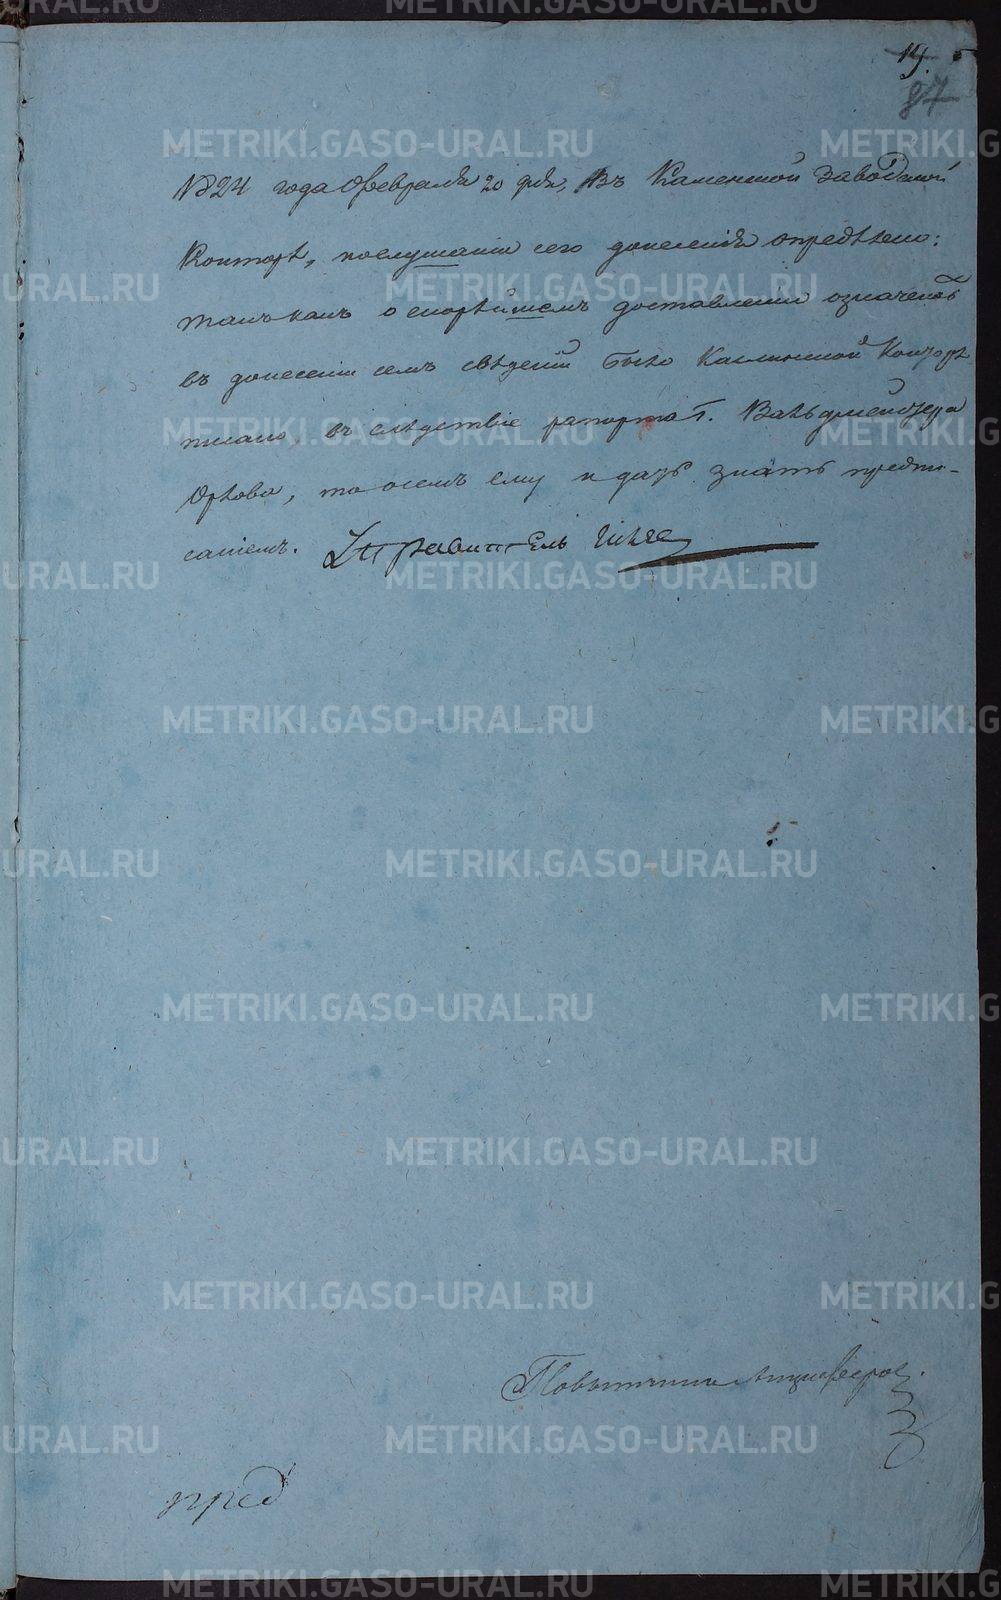 19.
87
1824 года Февраля 20 дня, Въ Каменской заводской
Конторѣ, послушании сего донесенія опредѣлено:
такъ какъ о скорѣйшемъ доставленіи означенныхъ
въ донесеніи семъ свѣденій было Каслинской Конторѣ
писано, въ слѣдствіе рапорта Г. Вальдмейстера
Орлова, то осемъ ему и дать знать предпи-
саніемъ. Управитель
Повытчикъ
пред
METRIKI.GASO-URAL.RU